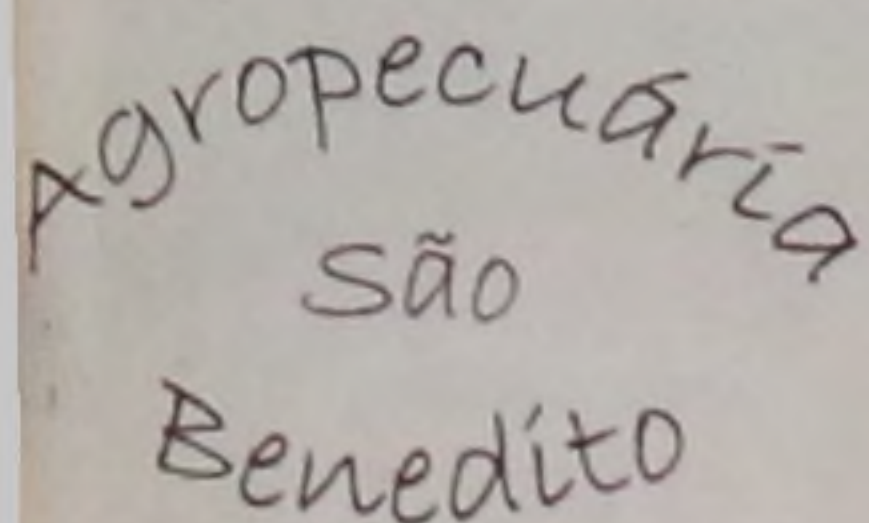 Agropecuária
São
Benedito